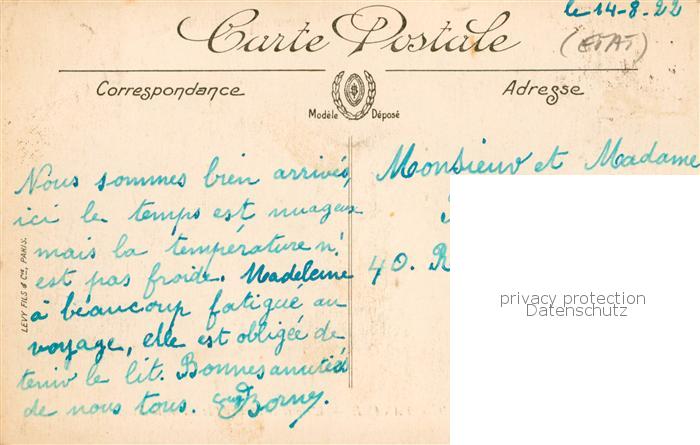 le 14-8-22
Carte Postale
(ETAT)
Correspondance
Adresse
Modèle Déposé
Nous sommes bien arrivés,
ici le temps est nuageux
mais la température n'
est pas froide. Madeleine
à beaucoup fatigué au
voyage, elle est obligée de
tenir le lit. Bonnes amitiés
de nous tous.
Monsieur et Madame
40. R
LEVY FILS & Cie, PARIS.
privacy protection
Datenschutz